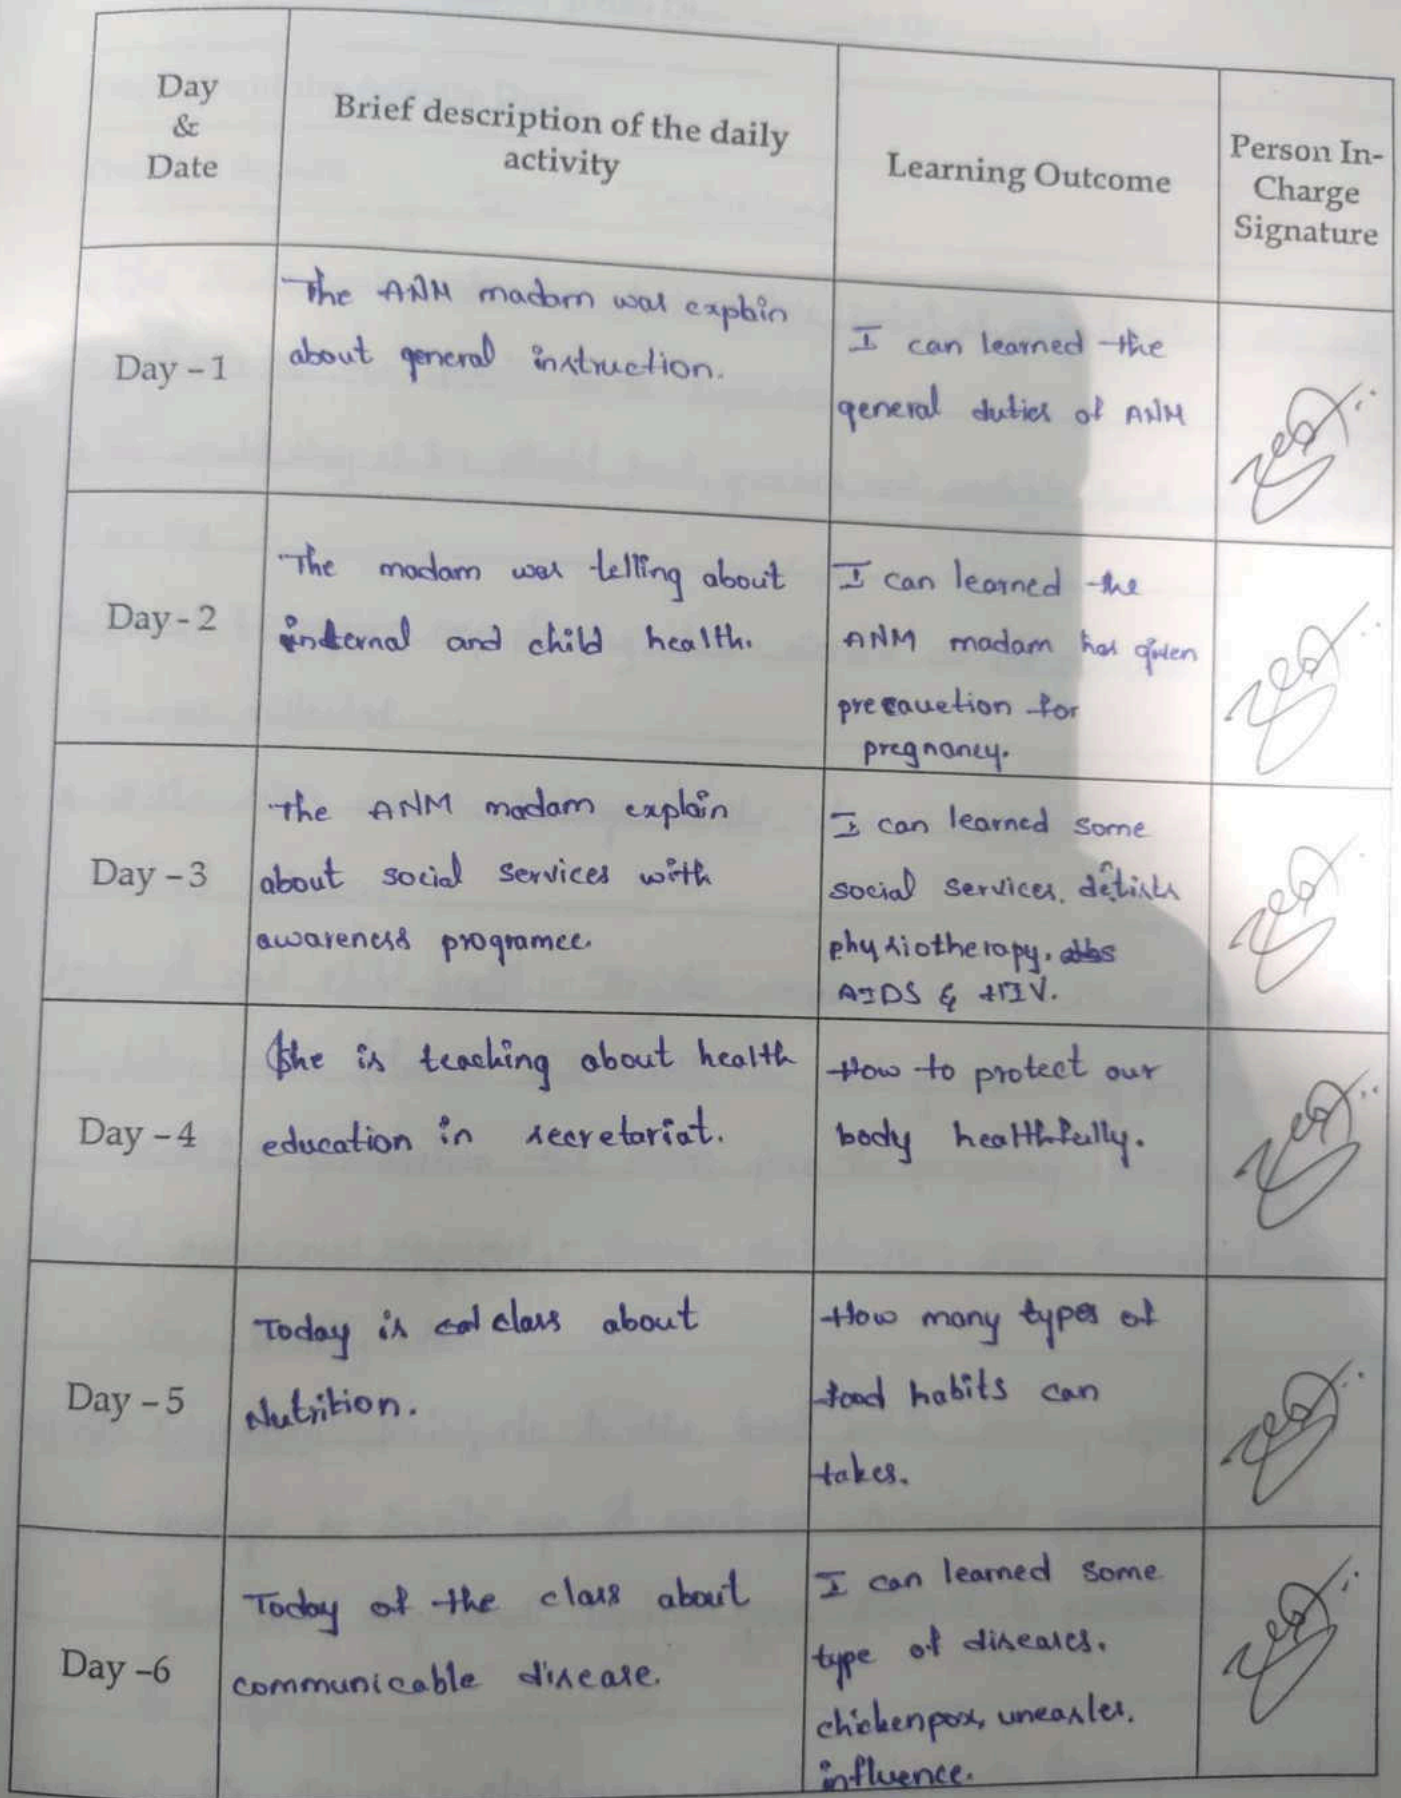 Day
&
Date
Brief description of the daily
activity
Learning Outcome
Person In-
Charge
Signature
Day - 1
The ANM madam was explain
about general instruction.
I can learned the
general duties of ANM
Day - 2
The madam was telling about
internal and child health.
I can learned the
ANM madam has given
precauetion for
pregnancy.
Day - 3
The ANM madam explain
about social services with
awareness programee.
I can learned some
social services,
physiotherapy.
AIDS & HIV.
Day - 4
She is teaching about health
education in secretariat.
How to protect our
body healthfully.
Day - 5
Today is class about
Nutrition.
How many types of
food habits can
takes.
Day -6
Today of the class about
communicable disease.
I can learned some
type of diseases.
chickenpox, uneasles,
influence.